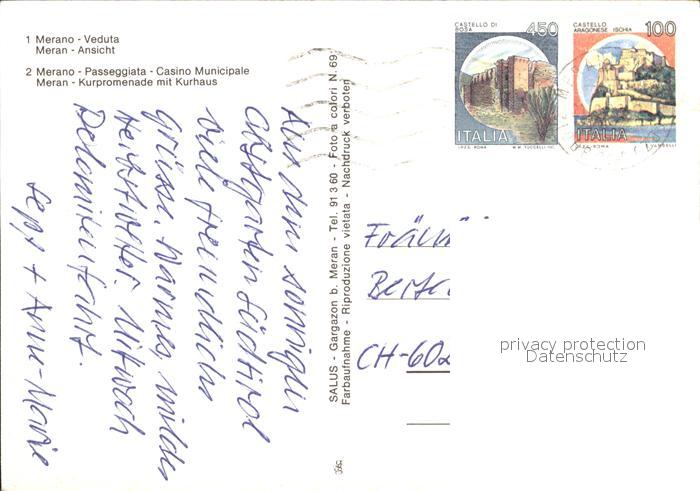 1 Merano - Veduta
Meran - Ansicht
2 Merano - Passeggiata - Casino Municipale
Meran - Kurpromenade mit Kurhaus
Aus dem sonnigen
Obstgarten Südtirol
viele freundliche
Grüsse. Warmes, mildes
Herbstwetter. Mitwoch
Dolomitenfahrt.
Sepp + Anne-Marie
SALUS - Gargazon b. Meran - Tel. 91 3 60 - Foto a colori N. 69
Farbaufnahme - Riproduzione vietata - Nachdruck verboten
CASTELLO DI
ROSA
450
ITALIA
I.P.Z.S. ROMA
CASTELLO
ARAGONESE ISCHIA
100
ITALIA
I.P.Z.S. ROMA
CH-602
privacy protection
Datenschutz